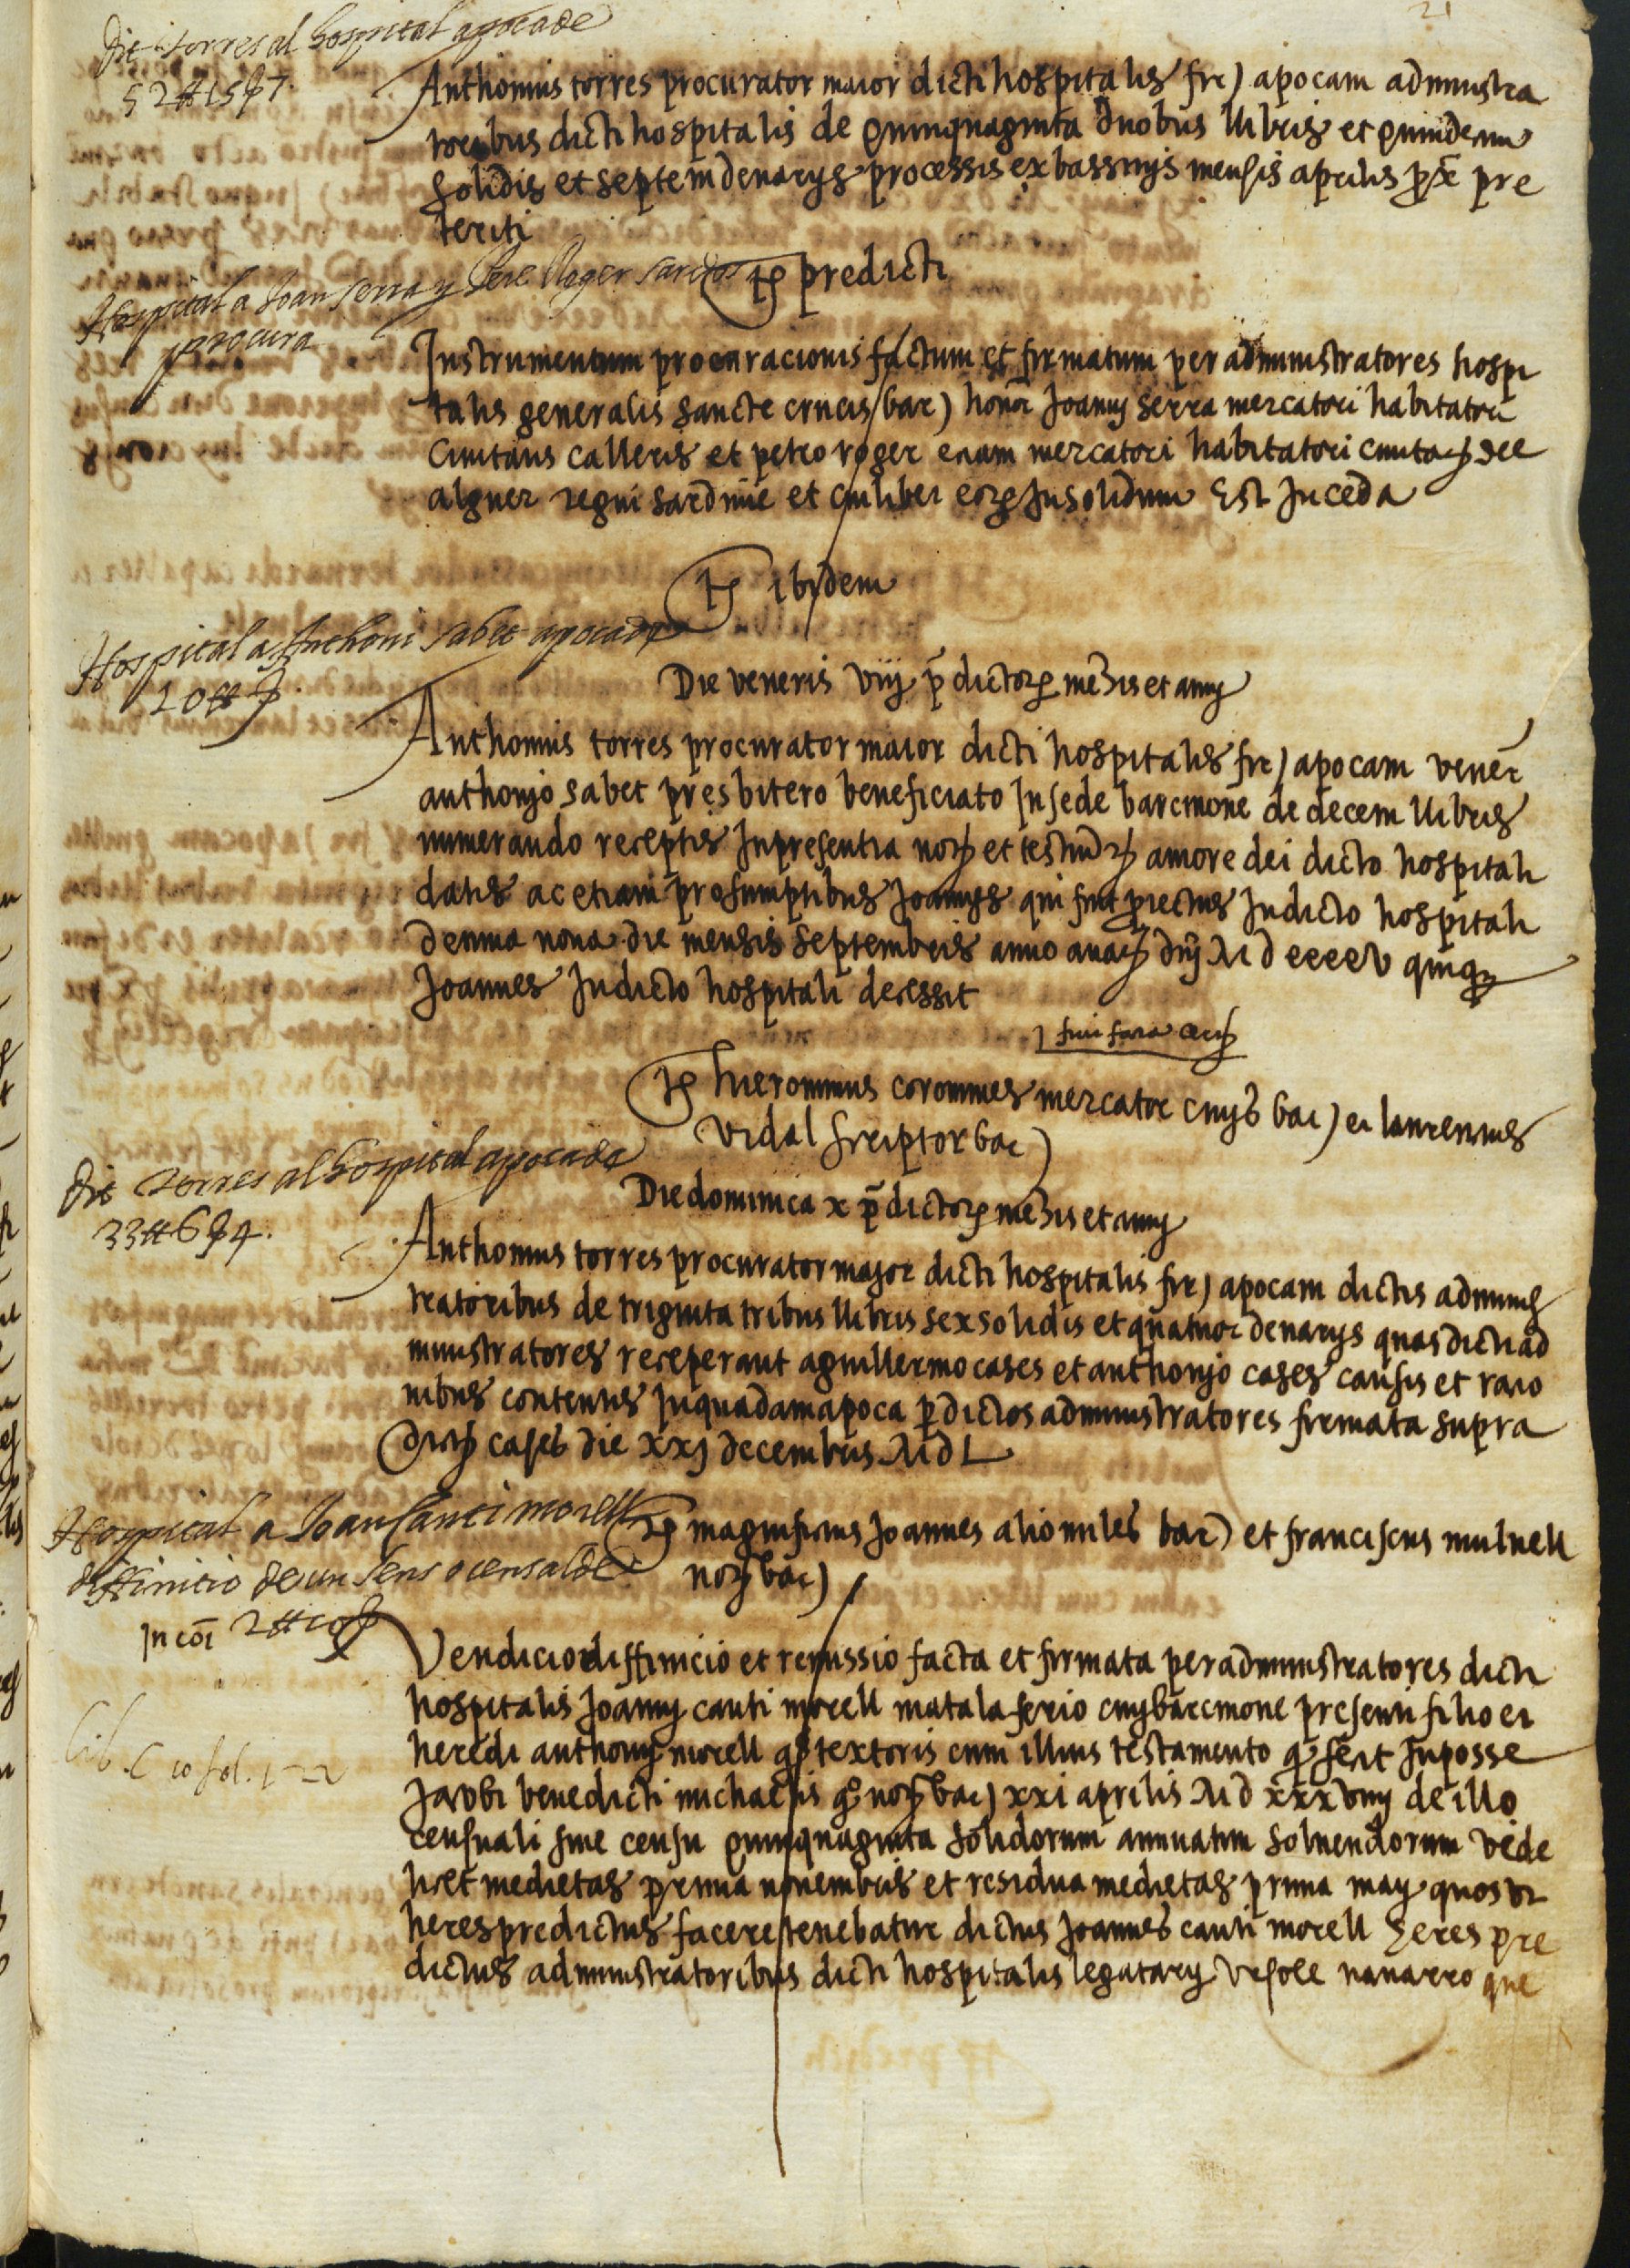 21
Dit torres al hospital apoca de
52 ℔ 15 ſ 7
Anthonius torres procurator maior dicti hospitalis fir) apocam administra
toribus dicti hospitalis de quinquaginta duobus llibris et quindecim
solidis et septem denarijs processis ex bassinis mensis aprilis p̄x̄ pre
teriti
Hospital a Joan serra y Pere Roger sardos
procura
Ts predicti
Instrumentum procuracionis factum et firmatum per administratores hospi
talis generalis sancte crucis bar) honor Joanni serra mercatori habitatori
civitatis calleris et petro roger etiam mercatori habitatori civitatis del
alguer regni sardinie et cuilibet eorum Insolidum Est Inceda
Ts ibidem
Hospital a Anthoni sabet apoca de
10 ℔ ſ
Die veneris viij p̄dictorum mensis et anny
Anthonius torres procurator maior dicti hospitalis fir) apocam vener
anthonjo sabet presbitero beneficiato Insede barcinone de decem llibris
numerando receptis Inpresentia notarii et testium amore dei dicto hospitali
datis ac etiam pro sumptibus Joannis qui fuit proiectus Indicto hospitali
decima nona die mensis septembris anno a nat dnj M d cccc v quinq
Joannes Indicto hospitali decessit
Ts hieronimus corommes mercator civis bar) et laurentius
vidal scriptor bar)
Dit torres al hospital apoca de
33 ℔ 6 ſ 4
Die dominica x p̄dictorum mensis et anny
Anthonius torres procurator major dicti hospitalis fir) apocam dictis adminis
tratoribus de triginta tribus llibris sex solidis et quatuor denarijs quas dicti ad
ministratores receperant a guillermo cases et anthonjo cases causis et racio
nibus contentis Inquadam apoca per dictos administratores firmata supra
dictis cases die xxj decembris M d L
Hospital a Joan Canti morell
diffinicio de un sens o censal de
In coi 2 ℔ 10 ſ
Ts magnificus Joannes alio miles bar) et franciscus mulnell
not bar)
Lib. C 10 fol. 122
Vendicio diffinicio et remissio facta et firmata per administratores dicti
hospitalis Joanny canti morell matalaserio civj barcinone presenti filio et
heredi anthonj morell q° textoris cum illius testamento q fecit Inposse
Jacobi benedicti michaelis q° not bar) xxi aprilis M d xxxviiij de illo
censuali sine censu quinquaginta solidorum annuatim solvendorum vide
licet medietas prima novembris et residua medietas prima may quos ut
heres predictus facere tenebatur dictus Joannes canti morell heres pre
dictus administratoribus dicti hospitalis legatary Ursole navarro que